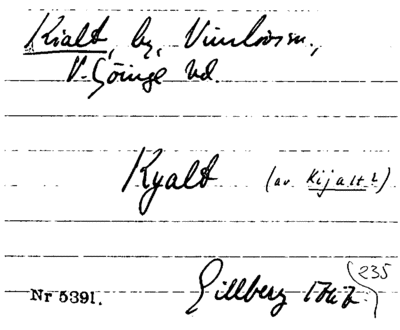 Kialt, by, Vinslövs sn.,
V. Göinge hd.
Kyalt (av Kijalt?)
Gillberg 1767 235
Nr 5391.